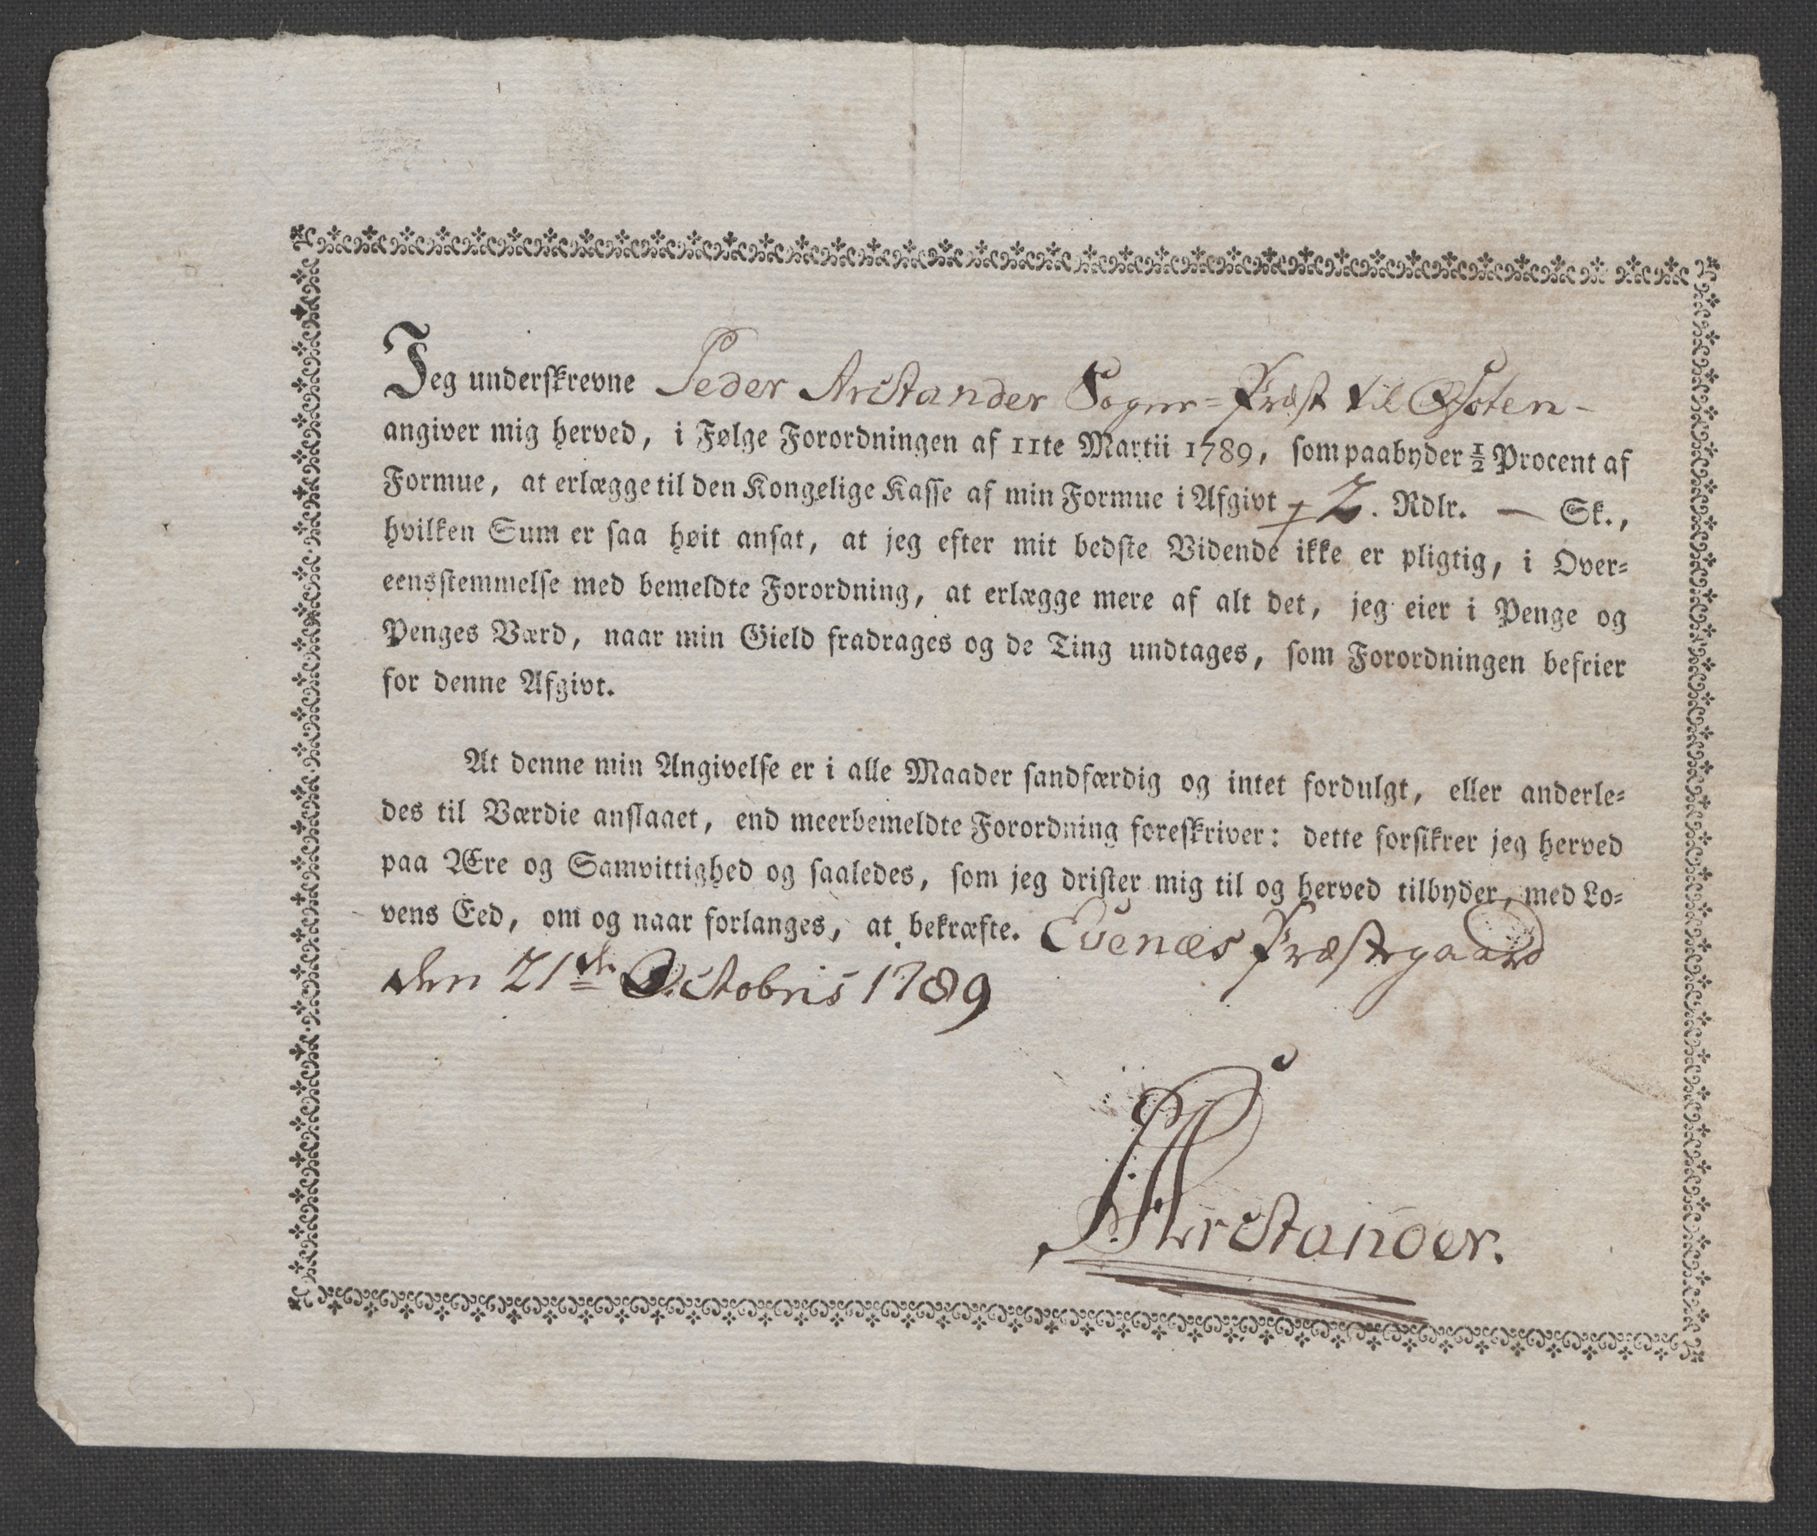 Jeg underskrevne Peder Arctander Sogne-Præst til Ofoten-
angiver mig herved, i Følge Forordningen af 11te Martii 1789, som paabyder ½ Procent af
Formue, at erlægge til den Kongelige Kasse af min Formue i Afgivt 2. Rdlr. — Sk.,
hvilken Sum er saa høit ansat, at jeg efter mit bedste Vidende ikke er pligtig, i Over-
eensstemmelse med bemeldte Forordning, at erlægge mere af alt det, jeg eier i Penge og
Penges Værd, naar min Gield fradrages og de Ting undtages, som Forordningen befrier
for denne Afgivt.
At denne min Angivelse er i alle Maader sandfærdig og intet fordulgt, eller anderle-
des til Værdie anslaaet, end meerbemeldte Forordning foreskriver: dette forsikrer jeg herved
paa Ære og Samvittighed og saaledes, som jeg drister mig til og herved tilbyder, med Lo-
vens Eed, om og naar forlanges, at bekræfte. Evenæs Præstegaard
den 21de Octobris 1789
PArctander.